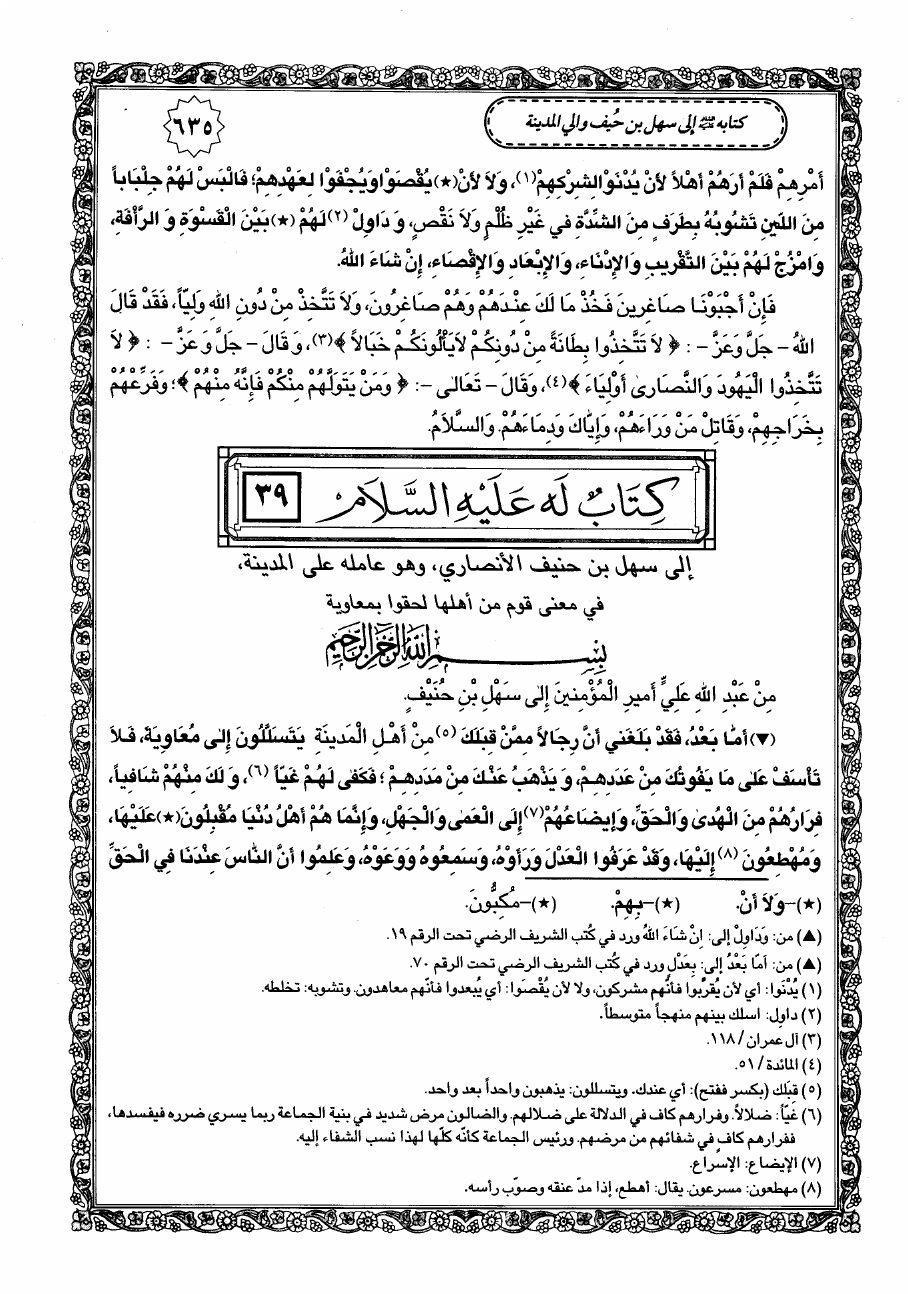 كتابه ﷺ إلى سهل بن حُيف والي المدينة
٦٣٥
أَمْرِهِمْ فَلَمْ أَرَهُمْ أَهْلاً لأَنْ يُدْنَوْا لِشِرْكِهِمْ(١)، وَلاَ لأَنْ(★) يُقْصَوْا وَيُجْفَوْا لِعَهْدِهِمْ؛ فَالْبَسْ لَهُمْ جِلْبَاباً
مِنَ اللّينِ تَشُوبُهُ بِطَرَفٍ مِنَ الشِّدَّةِ في غَيْرِ ظُلْمٍ وَلاَ نَقْصٍ، وَ دَاوِلْ(٢) لَهُمْ(★) بَيْنَ الْقَسْوَةِ وَ الرَّأْفَةِ،
وَامْزُجْ لَهُمْ بَيْنَ التَّقْرِيبِ وَالإِدْنَاءِ، وَالإِبْعَادِ وَالإِقْصَاءِ، إِنْ شَاءَ اللهُ.
فَإِنْ أَجَبْوْنَا صَاغِرِينَ فَخُذْ مَا لَكَ عِنْدَهُمْ وَهُمْ صَاغِرُونَ، وَلاَ تَتَّخِذْ مِنْ دُونِ اللهِ وَلِيّاً، فَقَدْ قَالَ
اللهُ - جَلَّ وَعَزَّ - : ﴿ لاَ تَتَّخِذُوا بِطَانَةً مِنْ دُونِكُمْ لاَيَأْلُونَكُمْ خَبَالاً ﴾(٣)، وَ قَالَ - جَلَّ وَ عَزَّ - : ﴿ لاَ
تَتَّخِذُوا الْيَهُودَ وَالنَّصَارىٰ أَوْلِيَاءَ ﴾(٤)، وَقَالَ - تَعَالىٰ -: ﴿ وَمَنْ يَتَوَلَّهُمْ مِنْكُمْ فَإِنَّهُ مِنْهُمْ ﴾؛ وَقَرِّعْهُمْ
بِخَرَاجِهِمْ، وَقَاتِلْ مَنْ وَرَاءَهُمْ، وَإِيّاكَ وَدِمَاءَهُمْ. وَالسَّلاَمُ.
كِتَابٌ لَه عَلَيْهِ السَّلاَم ٣٩
إلى سهل بن حنيف الأنصاري، وهو عامله على المدينة،
في معنى قوم من أهلها لحقوا بمعاوية
بِسْمِ اللهِ الرَّحْمٰنِ الرَّحِيمِ
مِنْ عَبْدِ اللهِ عَلِيٍّ أَمِيرِ الْمُؤْمِنِينَ إِلىٰ سَهْلِ بْنِ حُنَيْفٍ.
(▼) أَمّا بَعْدُ، فَقَدْ بَلَغَني أَنَّ رِجَالاً مِمَّنْ قِبَلَكَ(٥) مِنْ أَهْلِ الْمَدينَةِ يَتَسَلَّلُونَ إِلىٰ مُعَاوِيَةَ، فَلاَ
تَأْسَفْ عَلىٰ مَا يَفُوتُكَ مِنْ عَدَدِهِمْ، وَ يَذْهَبُ عَنْكَ مِنْ مَدَدِهِمْ؛ فَكَفىٰ لَهُمْ غَيّاً(٦)، وَ لَكَ مِنْهُمْ شَافِياً،
فِرَارُهُمْ مِنَ الْهُدىٰ وَالْحَقِّ، وَإيضَاعُهُمْ(٧) إِلَى الْعَمىٰ وَالْجَهْلِ، وَإِنَّمَا هُمْ أَهْلُ دُنْيَا مُقْبِلُونَ(★) عَلَيْهَا،
وَمُهْطِعُونَ(٨) إِلَيْهَا، وَقَدْ عَرَفُوا الْعَدْلَ وَرَأَوْهُ، وَسَمِعُوهُ وَوَعَوْهُ، وَعَلِمُوا أَنَّ النّاسَ عِنْدَنَا فِي الْحَقِّ
(★)-وَلاَ أَنْ. (★)-بِهِمْ. (★)-مُكِبُّونَ.
(▲) من: وَدَاوِلْ إلى: إِنْ شَاءَ اللهُ ورد في كُتب الشريف الرضي تحت الرقم ١٩.
(▲) من: أَمّا بَعْدُ إلى: بِعَدْلٍ ورد في كُتب الشريف الرضي تحت الرقم ٧٠.
(١) يُدْنَوا: أي لأن يُقرَّبوا فأنّهم مشركون، ولا لأن يُقْصَوا: أي يُبعدوا فأنّهم معاهدون. وتشوبه: تخلطه.
(٢) داول: اسلك بينهم منهجاً متوسطاً.
(٣) آل عمران / ١١٨.
(٤) المائدة / ٥١.
(٥) قِبَلك (بكسر ففتح): أي عندك. ويتسللون: يذهبون واحداً بعد واحد.
(٦) غَيّاً: ضلالاً. وفرارهم كاف في الدلالة على ضلالهم. والضالون مرض شديد في بنية الجماعة ربما يسري ضرره فيفسدها،
ففرارهم كافٍ في شفائهم من مرضهم. ورئيس الجماعة كأنّه كلّها لهذا نسب الشفاء إليه.
(٧) الإيضاع: الإسراع.
(٨) مهطعون: مسرعون. يقال: أهطع، إذا مدّ عنقه وصوّب رأسه.